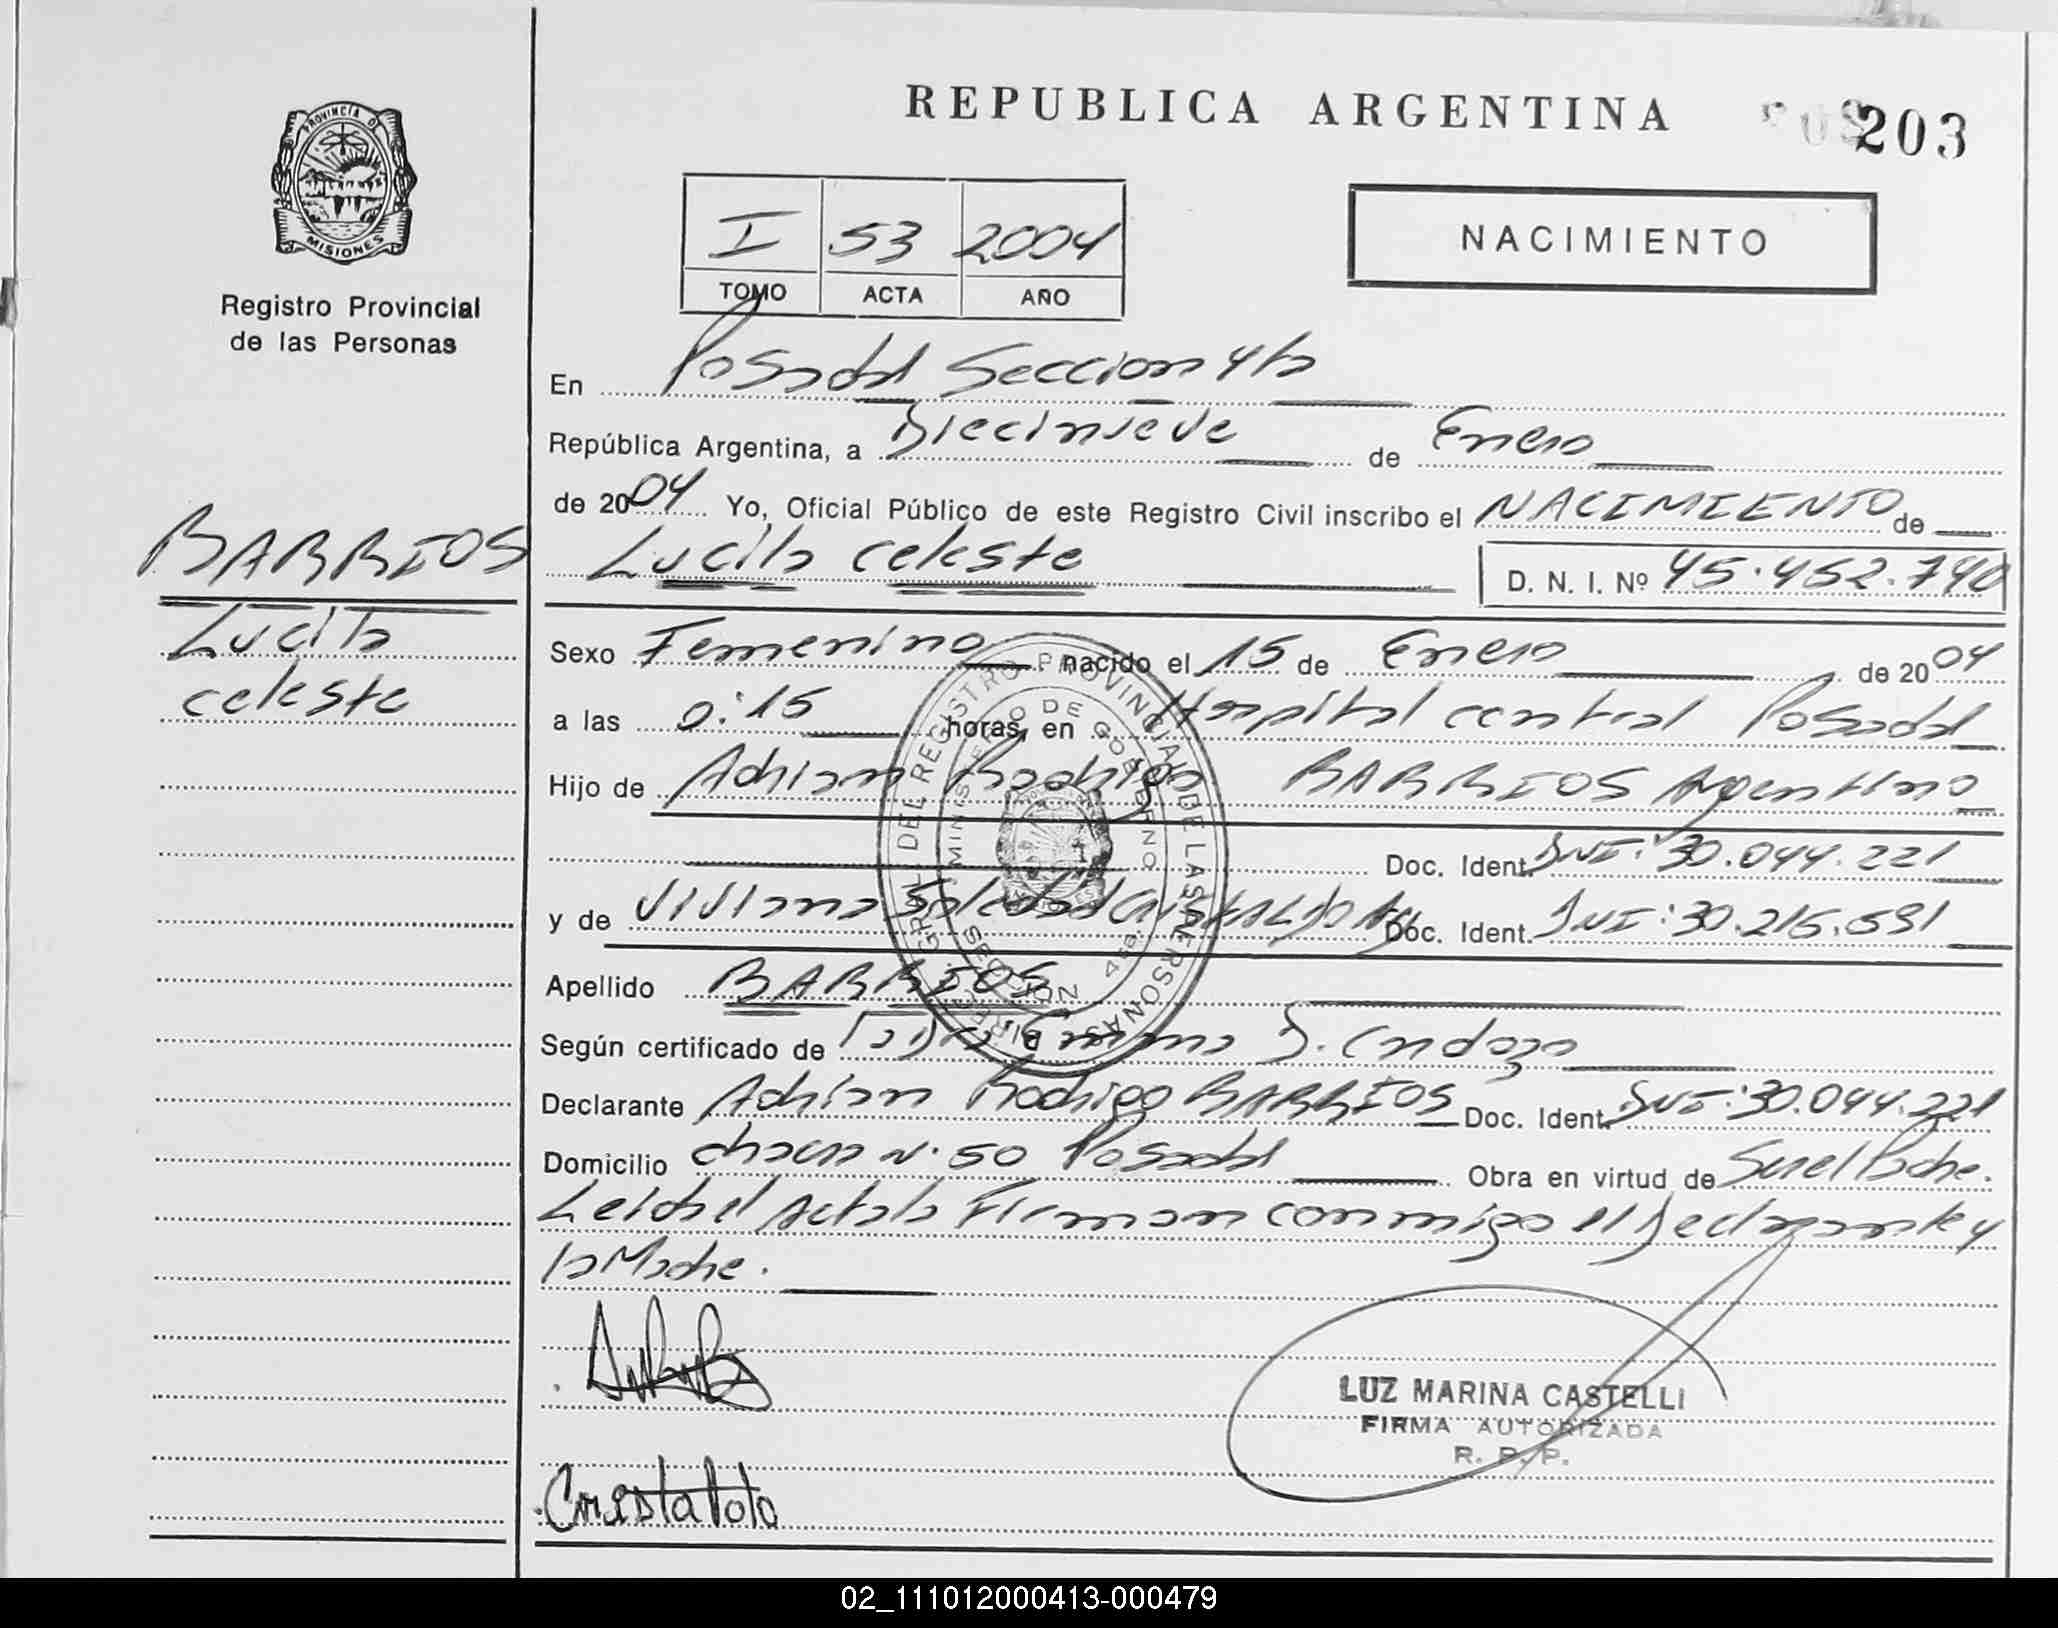 REPUBLICA ARGENTINA
203
PROVINCIA DE
MISIONES
Registro Provincial
de las Personas
I 53 2004
TOMO ACTA AÑO
NACIMIENTO
En Posadas Seccion 4ta
República Argentina, a Diecinueve de Enero
de 2004 Yo, Oficial Público de este Registro Civil inscribo el NACIMIENTO de
Lucila celeste D. N. I. Nº 45.452.740
BARRIOS
Lucila
celeste
Sexo Femenino nacido el 15 de Enero de 2004
a las 0:15 horas, en Hospital central Posadas
Hijo de Adrian Rodrigo BARRIOS Argentino
Doc. Ident. DNI: 30.044.221
y de Viviana Soledad Doc. Ident. DNI: 30.215.591
Apellido BARRIOS
Según certificado de
Declarante Adrian Rodrigo BARRIOS Doc. Ident. DNI: 30.044.221
Domicilio chacra N. 50 Posadas Obra en virtud de Ser el Padre.
Leida el Acta la Firman conmigo el Declarante y
la Madre.
LUZ MARINA CASTELLI
FIRMA AUTORIZADA
R. P. P.
02_111012000413-000479